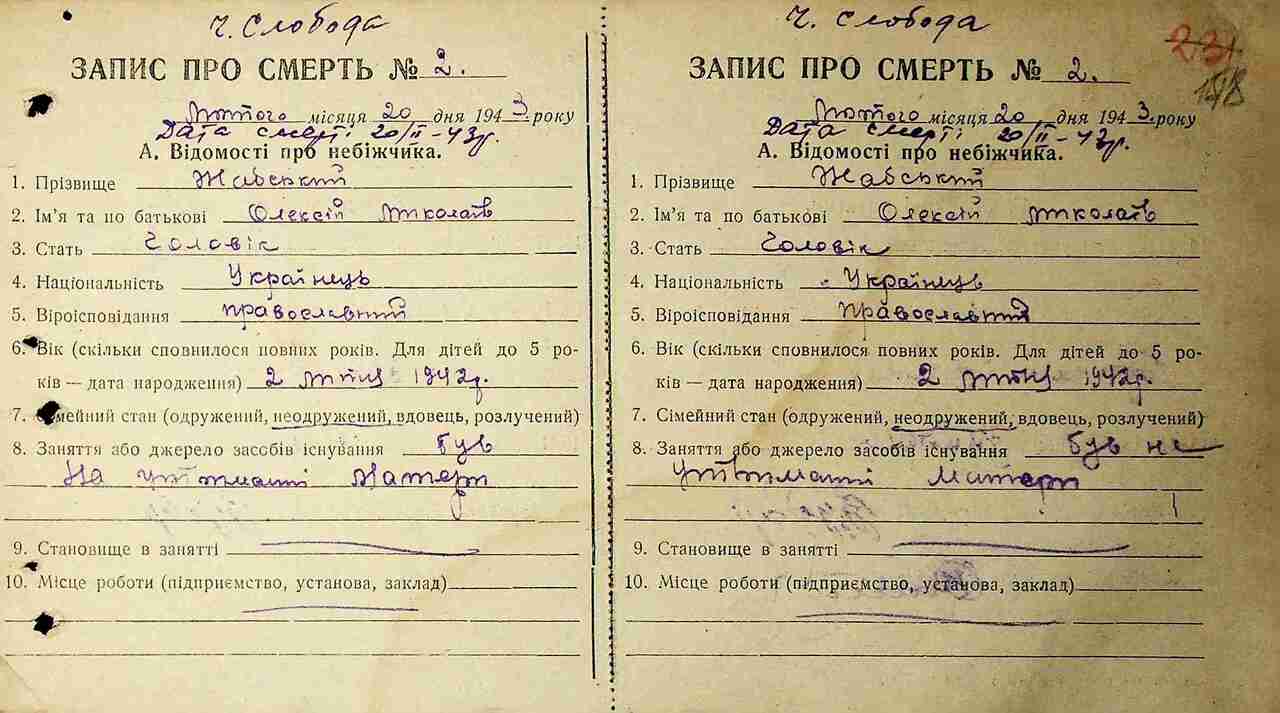 Ч. Слобода
ЗАПИС ПРО СМЕРТЬ № 2.
Лютого місяця 20 дня 1943. року
Дата смерті 20/II-43р.
А. Відомості про небіжчика.
1. Прізвище Жабський
2. Ім'я та по батькові Олексій Миколаїв
3. Стать Чоловік
4. Національність Українець
5. Віроісповідання православний
6. Вік (скільки сповнилося повних років. Для дітей до 5 ро-
ків — дата народження) 2 1942р.
7. Сімейний стан (одружений, неодружений, вдовець, розлучений)
8. Заняття або джерело засобів існування був
На утриманні Матери
9. Становище в занятті
10. Місце роботи (підприємство, установа, заклад)
Ч. Слобода
231
ЗАПИС ПРО СМЕРТЬ № 2.
Лютого місяця 20 дня 1943. року
Дата смерті 20/II-43р.
А. Відомості про небіжчика.
1. Прізвище Жабський
2. Ім'я та по батькові Олексій Миколаїв
3. Стать Чоловік
4. Національність Українець
5. Віроісповідання православний
6. Вік (скільки сповнилося повних років. Для дітей до 5 ро-
ків — дата народження) 2 1942р.
7. Сімейний стан (одружений, неодружений, вдовець, розлучений)
8. Заняття або джерело засобів існування був на
утриманні Матери
9. Становище в занятті
10. Місце роботи (підприємство, установа, заклад)